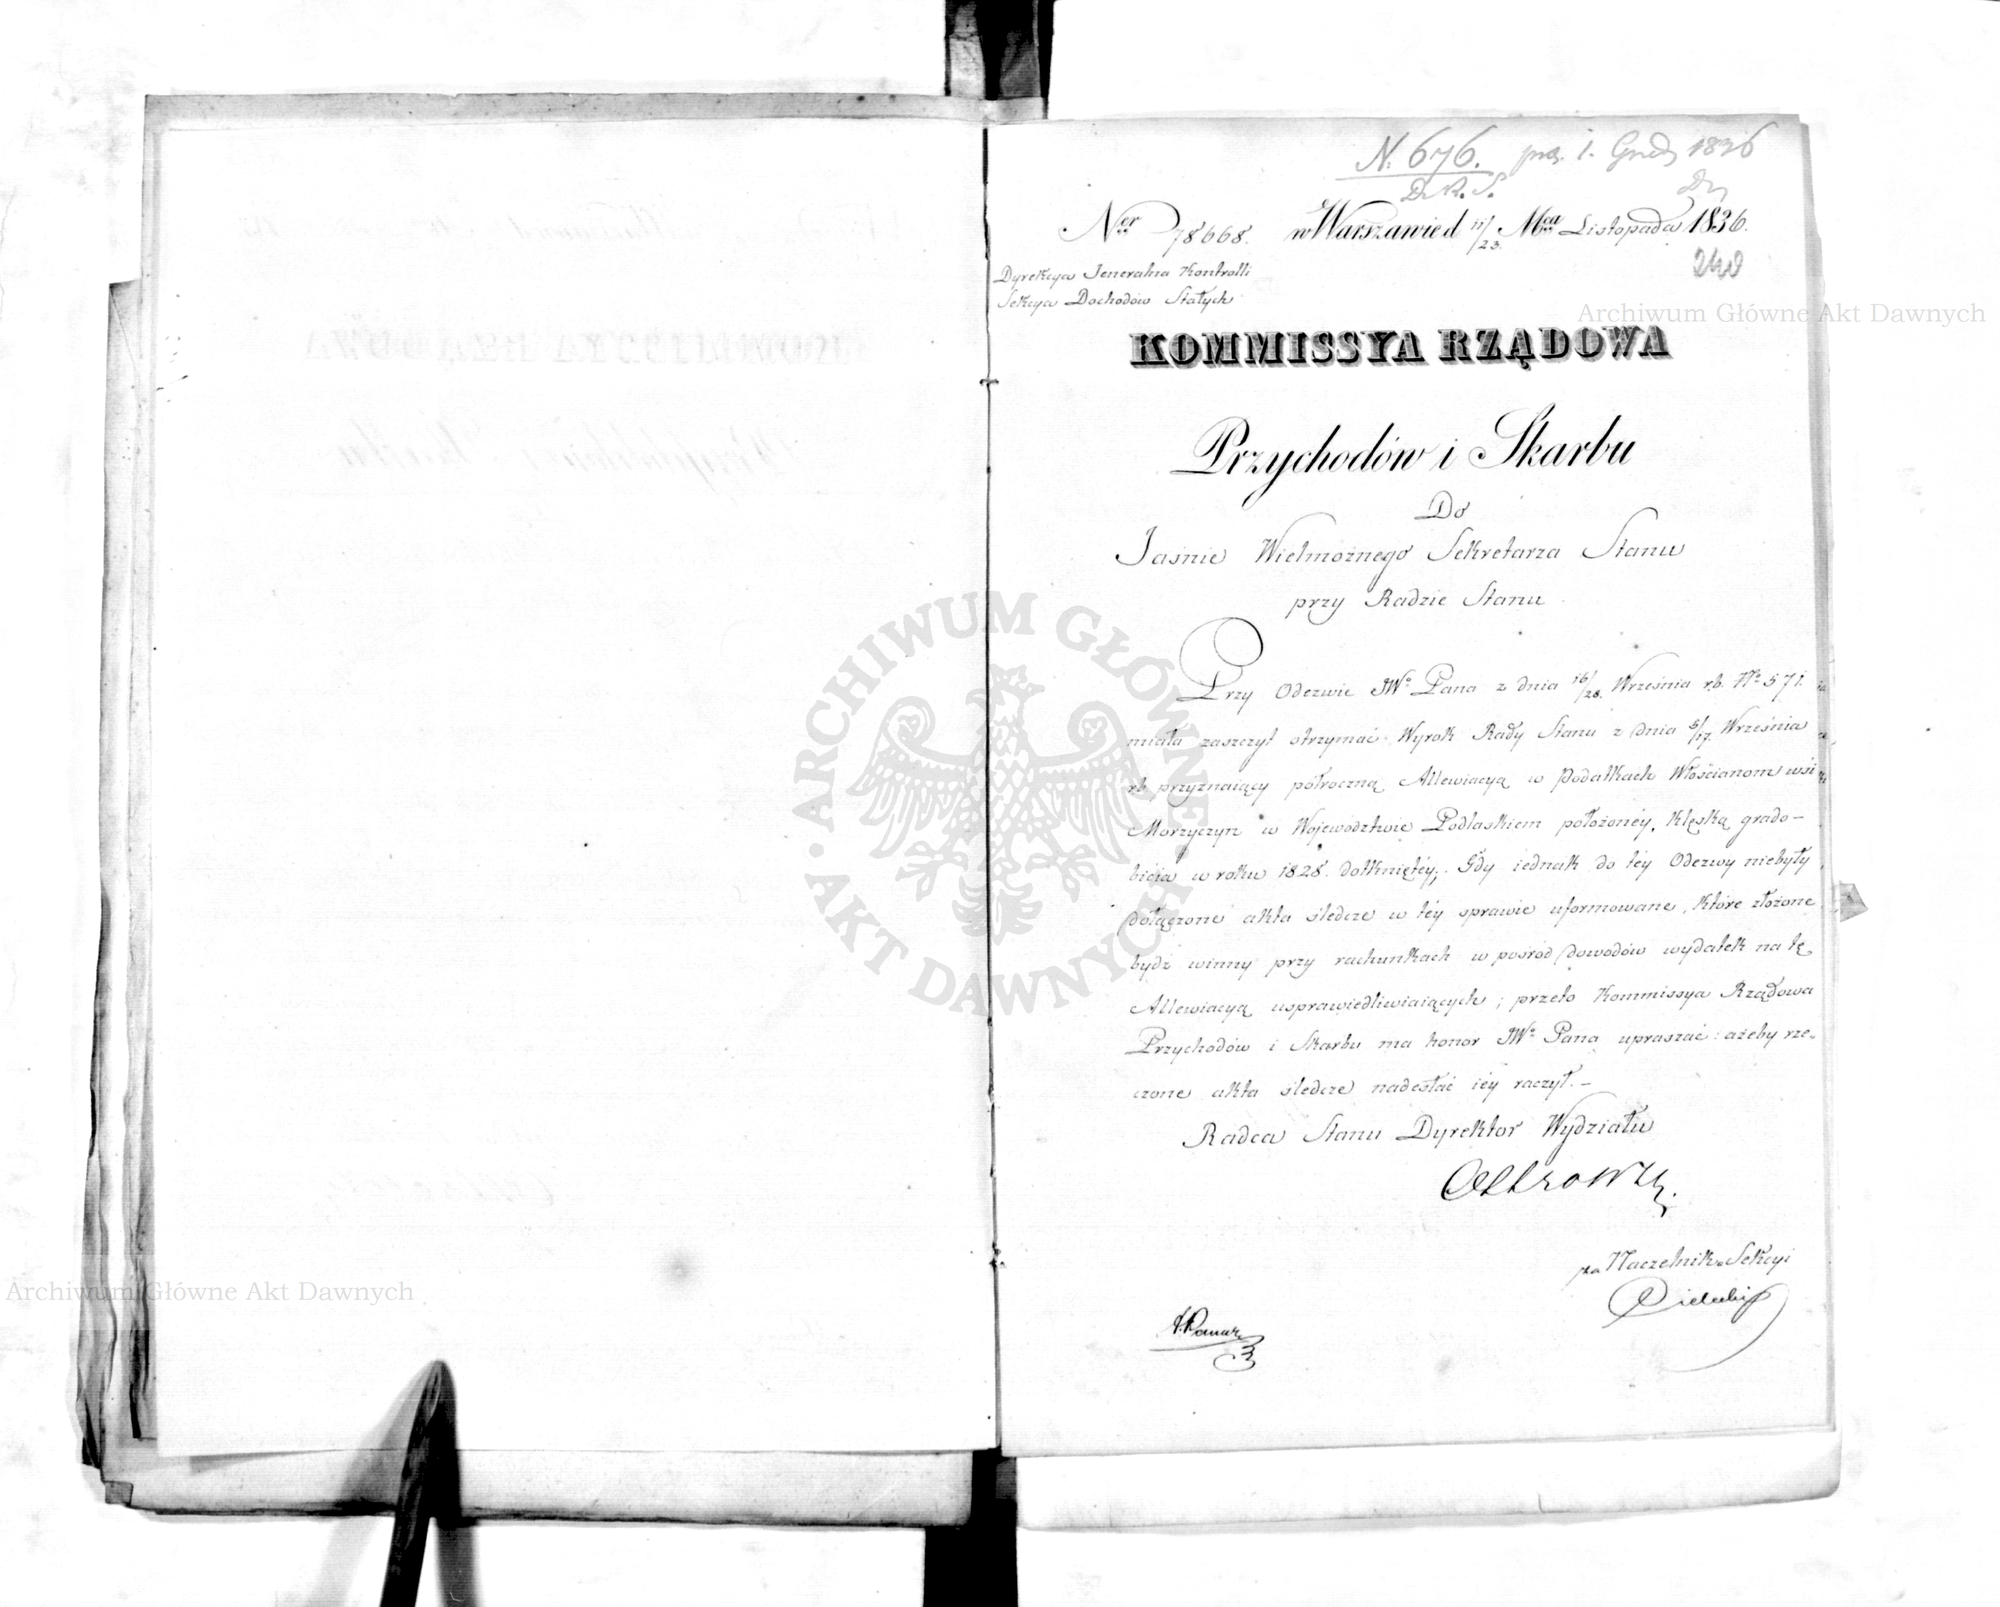 N. 676. prz. 1. Grud 1836
D. R. S.
Ner 78668. w Warszawie d 11/23. Mca Listopada 1836.
240
Dyrekcya Jeneralna Kontrolli
Sekcya Dochodów Stałych
KOMMISSYA RZĄDOWA
Przychodów i Skarbu
Do
Jaśnie Wielmożnego Sekretarza Stanu
przy Radzie Stanu.
Przy Odezwie JWo Pana z dnia 16/28. Września r.b. No 571.
miała zaszczyt otrzymać Wyrok Rady Stanu z dnia 5/17. Września
rb przyznaiący półroczną Allewiacyą w Podatkach Włościanom wsi
Morzyczyn w Województwie Podlaskiem położoney, klęską grado-
bicia w roku 1828. dotkniętéy;. Gdy iednak do téy Odezwy niebyły
dołączone akta śledcze w téy sprawie uformowane, które złożone
bydź winny przy rachunkach w pośród dowodów wydatek na tę
Allewiacyą usprawiedliwiaiących; przeto Kommissya Rządowa
Przychodów i Skarbu ma honor JWo Pana upraszać: ażeby rze-
czone akta śledcze nadesłać iéy raczył. –
Radca Stanu Dyrektor Wydziału
za Naczelnika Sekcyi
Archiwum Główne Akt Dawnych
Archiwum Główne Akt Dawnych
ARCHIWUM GŁÓWNE · AKT DAWNYCH ·